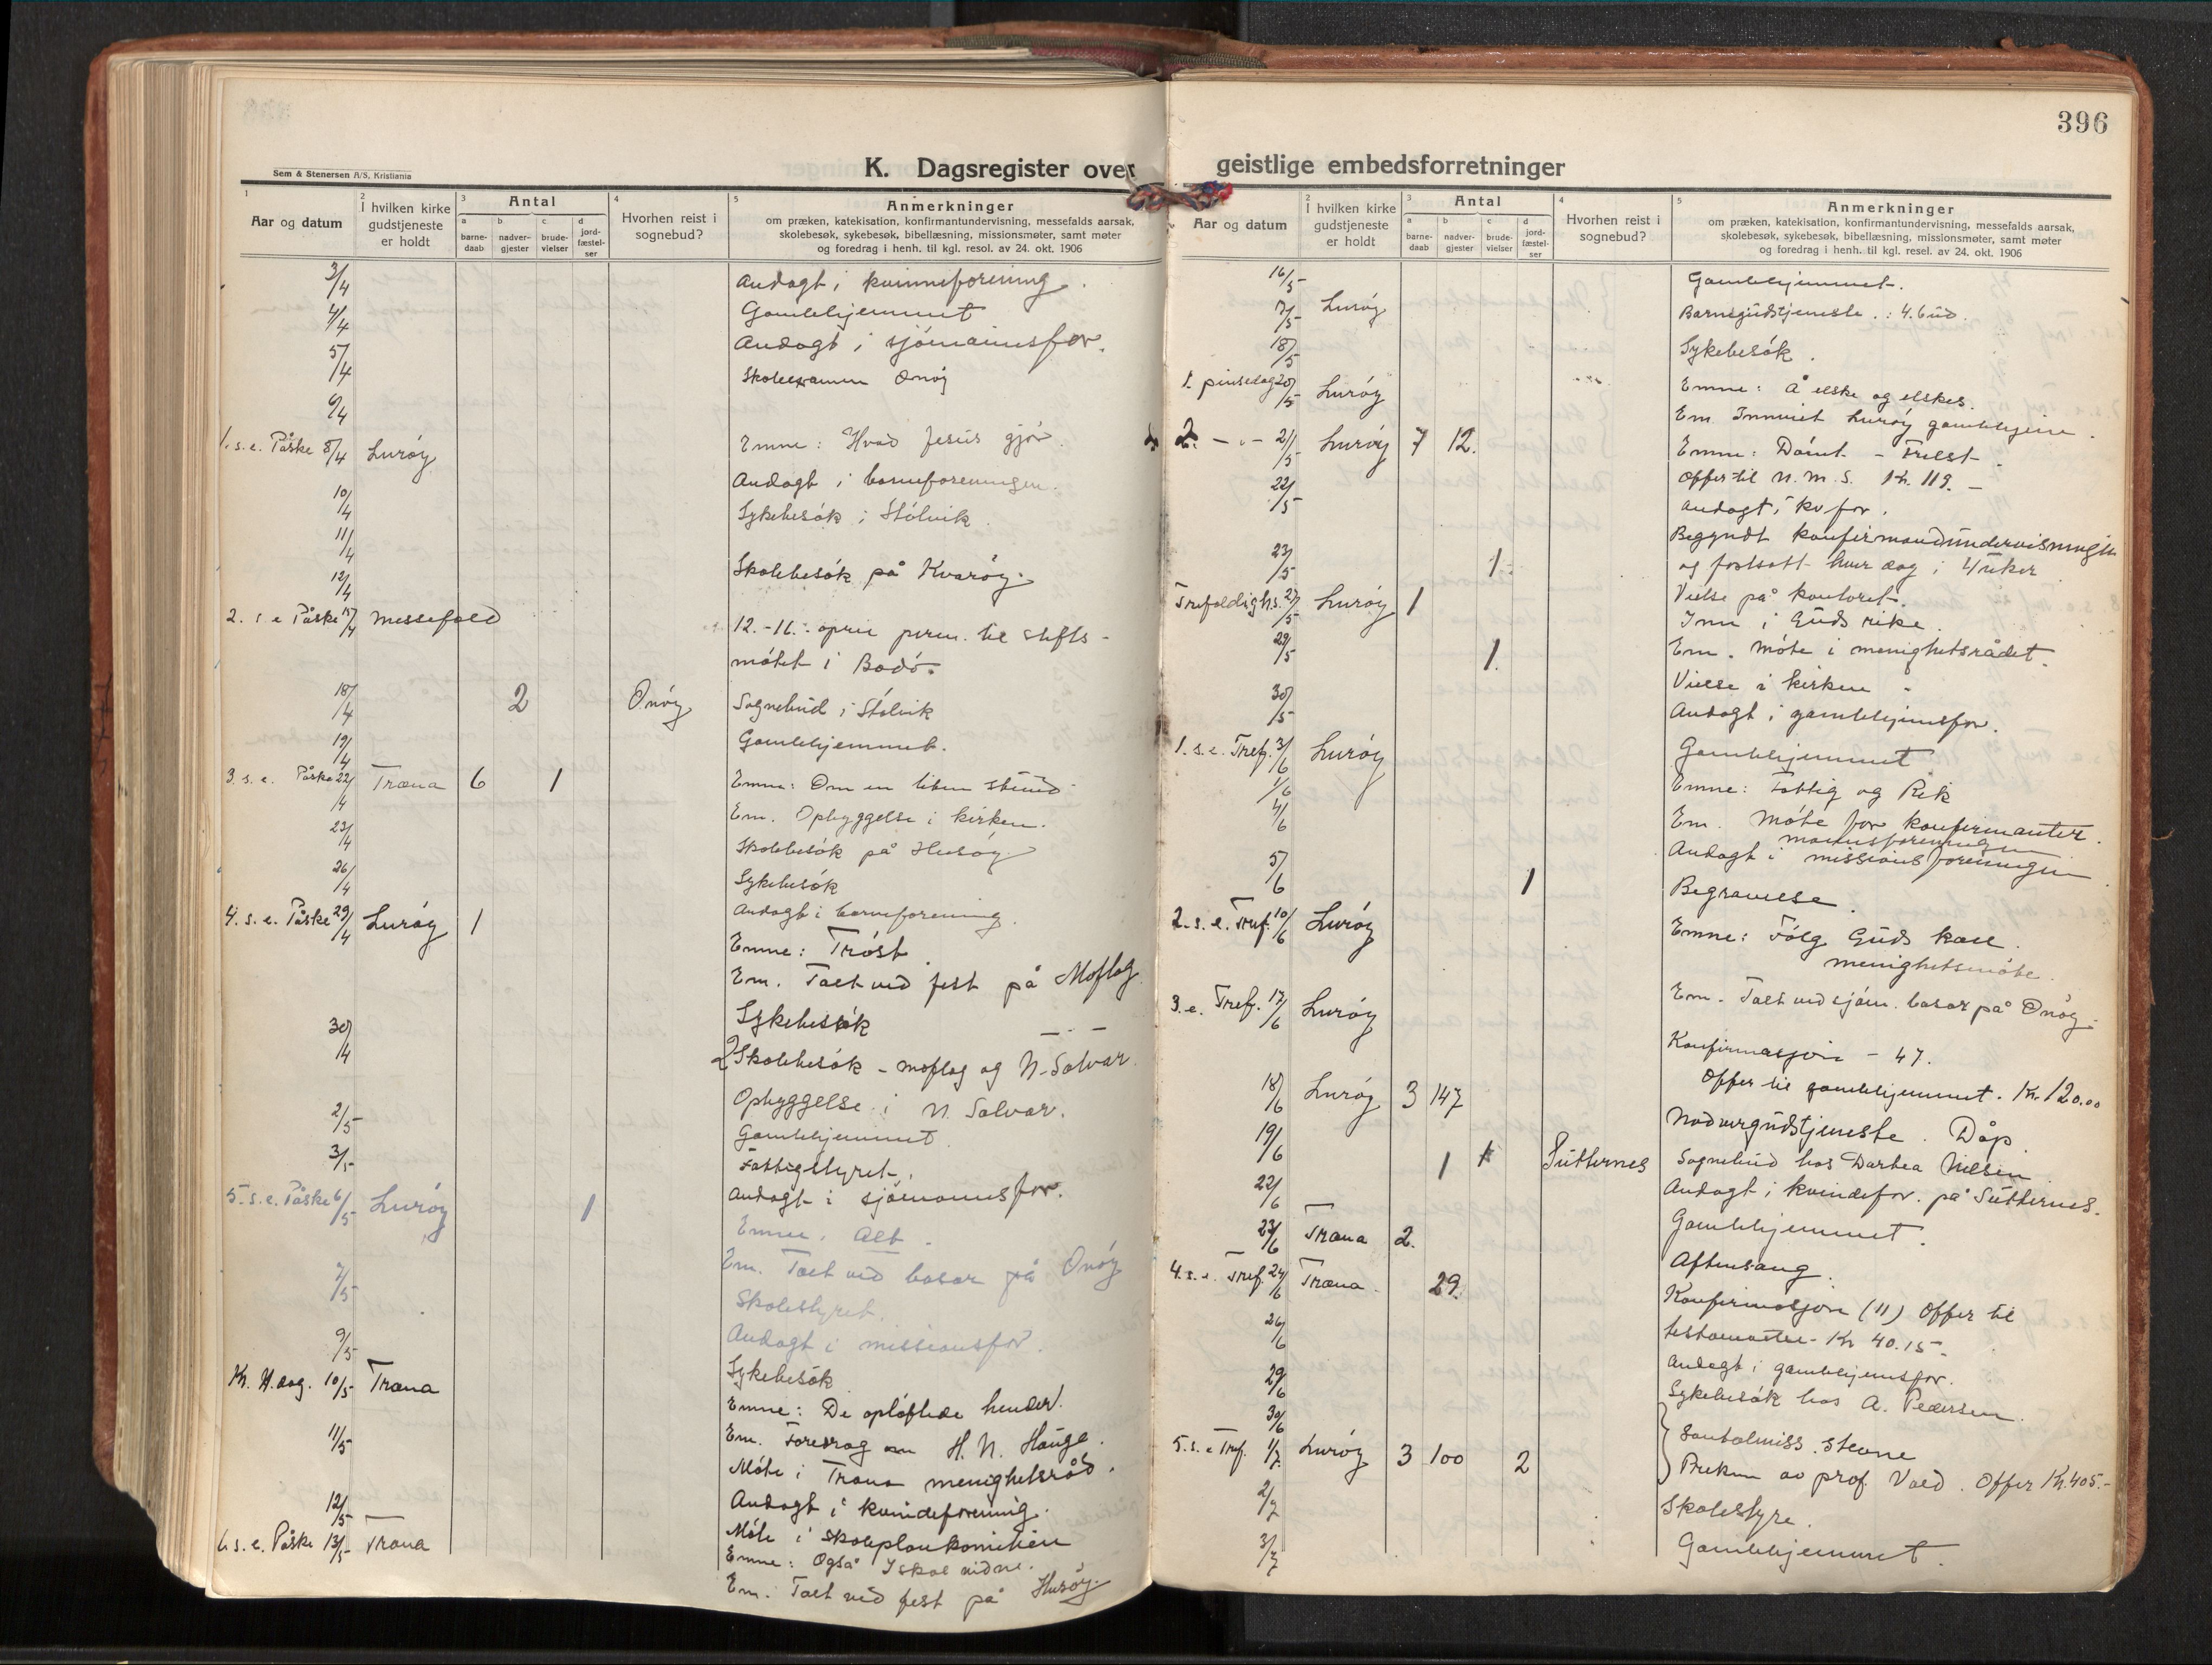 396
K. Dagsregister over geistlige embedsforretninger
Sem & Stenersen A/S, Kristiania
1
Aar og datum
2
I hvilken kirke gudstjeneste er holdt
3
Antal
a barne-daab
b nadver-gjester
c brude-vielser
d jord-fæstel-ser
4
Hvorhen reist i sognebud?
5
Anmerkninger
om præken, katekisation, konfirmantundervisning, messefalds aarsak,
skolebesøk, sykebesøk, bibellæsning, missionsmøter, samt møter
og foredrag i henh. til kgl. resol. av 24. okt. 1906
3/4 Andagt i kvinneforening.
4/4 Gamlehjemmet
5/4 Andagt i sjómannsfor.
6/4 Skoleexamen Onóy
1. s. e. Påske 8/4 Luróy Emne: Hvad Jesus gjór.
Andagt i barneforeningen.
10/4 Sykebesók i Stólvik.
11/4
12/4 Skolebesók på Kvaróy.
2. s. e Påske 15/4 messefald 12.-16. april perm. til stifts-
mótet i Bodó.
18/4 2 Onóy Sognebud i Stólvik
19/4 Gamlehjemmet.
3. s. e. Påske 22/4 Træna 6 1 Emne: Om en liten stund
Em. Opbyggelse i kirken.
23/4 Skolebesók på Husóy
26/4 Sykebesók
Andagt i barneforening.
4. s. e. Påske 29/4 Luróy 1 Emne: Tróst.
Em. Talt ved fest på Moflag
Sykebesók
30/4 2 Skolebesók - moflag og N-Solvær.
Opbyggelse i N. Solvær.
2/5 Gamlehjemmet.
3/5 Fattigstyret.
Andagt i sjómannsfor.
5. s. e. Påske 6/5 Luróy 1 Emne: Alt.
Em. Talt ved basar på Onóy
7/5 Skolestyret.
Andagt i missionsfor.
9/5 Sykebesók
Kr. H. dag. 10/5 Træna Emne: De oplóftede hender.
Em. Foredrag om H. N. Hauge.
11/5 Móte i Træna menighetsråd.
Andagt i kvindeforening.
12/5 Móte i skoleplankomitéen
6 s. e. Påske 13/5 Træna Emne: Også I skal vidne.
Em. Talt ved fest på Husóy.
1
Aar og datum
2
I hvilken kirke gudstjeneste er holdt
3
Antal
a barne-daab
b nadver-gjester
c brude-vielser
d jord-fæstel-ser
4
Hvorhen reist i sognebud?
5
Anmerkninger
om præken, katekisation, konfirmantundervisning, messefalds aarsak,
skolebesøk, sykebesøk, bibellæsning, missionsmøter, samt møter
og foredrag i henh. til kgl. resel. av 24. okt. 1906
16/5 Gamlehjemmet.
17/5 Luróy Barnegudstjeneste: 4. bud.
18/5 Sykebesók.
1. pinsedag 20/5 Luróy Emne: Å elske og elskes.
Em Innviet Luróy gamlehjem.
2. - " - 21/5 Luróy 7 12. Emne: Dómt - Frelst.
Offer til N. M. S. Kr. 119. -
22/5 Andagt i kv for.
Begyndt konfirmandundervisningen
og fortsatt hver dag i 4 uker
23/5 1. Vielse på kontoret.
Trefoldigh.s. 27/5 Luróy 1 Inn i Guds rike.
Em. Móte i menighetsrådet.
29/5 1. Vielse i kirken
Andagt i gamlehjemsfor.
30/5 Gamlehjemmet
1. s. e. Tref. 3/6 Luróy Emne: Fattig og Rik
1/6 Em. Móte for konfirmanter.
4/6 Andagt i missionsforeningen
5/6 1 Begravelse.
2. s. e. Tref. 10/6 Luróy Emne: Fólg Guds kall.
menighetsmóte.
Em. Talt ved sjóm. basar på Onóy.
3. e. Tref. 17/6 Luróy Konfirmasjon - 47.
Offer til gamlehjemmet. Kr. 120.00
18/6 Luróy 3 147 Nadvergudstjeneste. Dåp
19/6 1 Sutternes Sognebud hos Dorthea Nilsen
Andagt i kvindefor. på Sutternes.
22/6 Gamlehjemmet.
23/6 Træna 2. Aftensang.
4. s. e. Tref. 24/6 Træna 29. Konfirmasjon (11) Offer til
testamenter Kr 40.15
26/6 Andagt i gamlehjemsfor.
29/6 Sykebesók hos A. Pedersen.
30/6 Santalmiss. stevne
5. s. e Tref. 1/7 Luróy 3 100 2 Preken av prof. Vold. Offer Kr. 405.-
2/7 Skolestyre.
3/7 Gamlehjemmet.